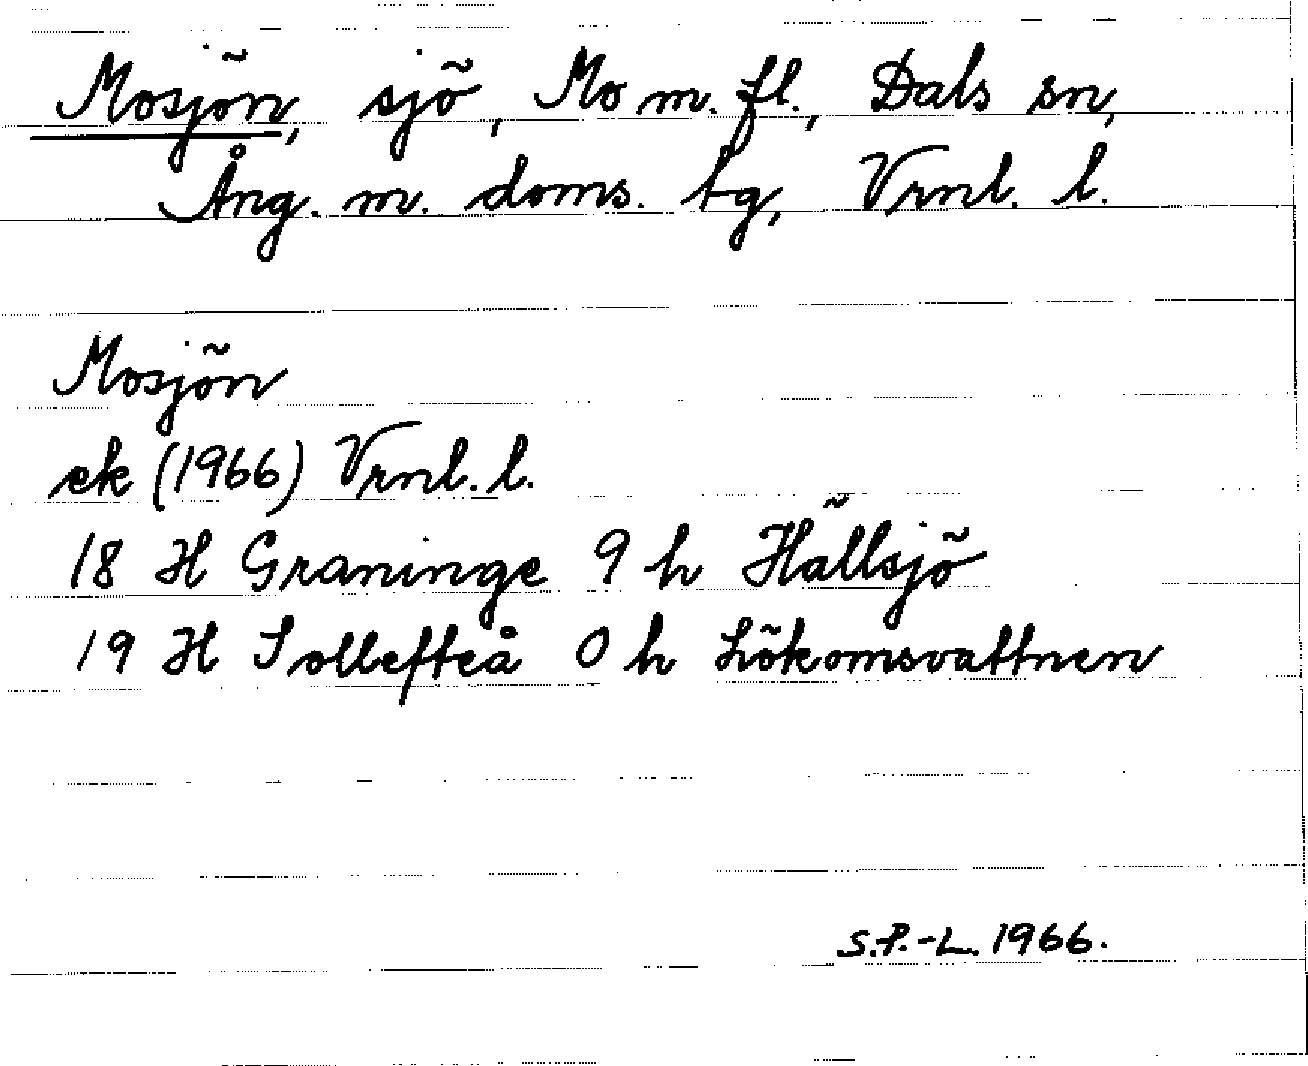 Mosjön, sjö, Mo m. fl., Dals sn,
Ång. m. doms. tg, Vrnl. l.
Mosjön
ek (1966) Vrnl. l.
18 H Graninge 9 h Hällsjö
19 H Sollefteå 0 h Lökomsvattnen
S.P.-L. 1966.